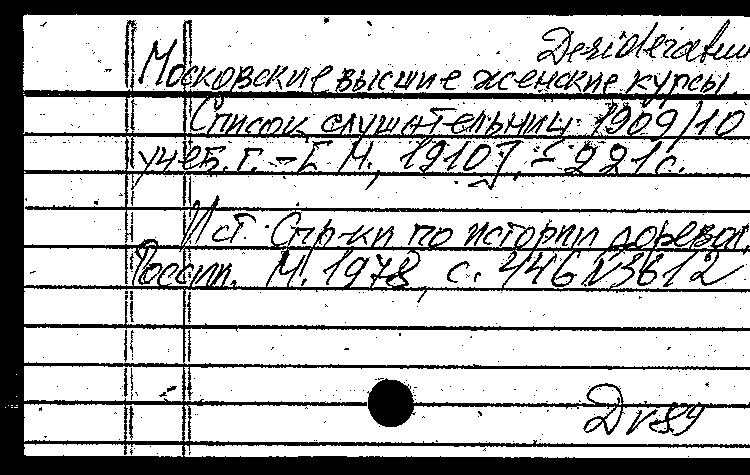 Desideratum
Московские высшие женские курсы.
Список слушательниц 1909/10
учеб. г. – [М., 1910]. – 221 с.
Ист. Спр-ки по истории доревол.
России. М. 1978, с. 446 №3612